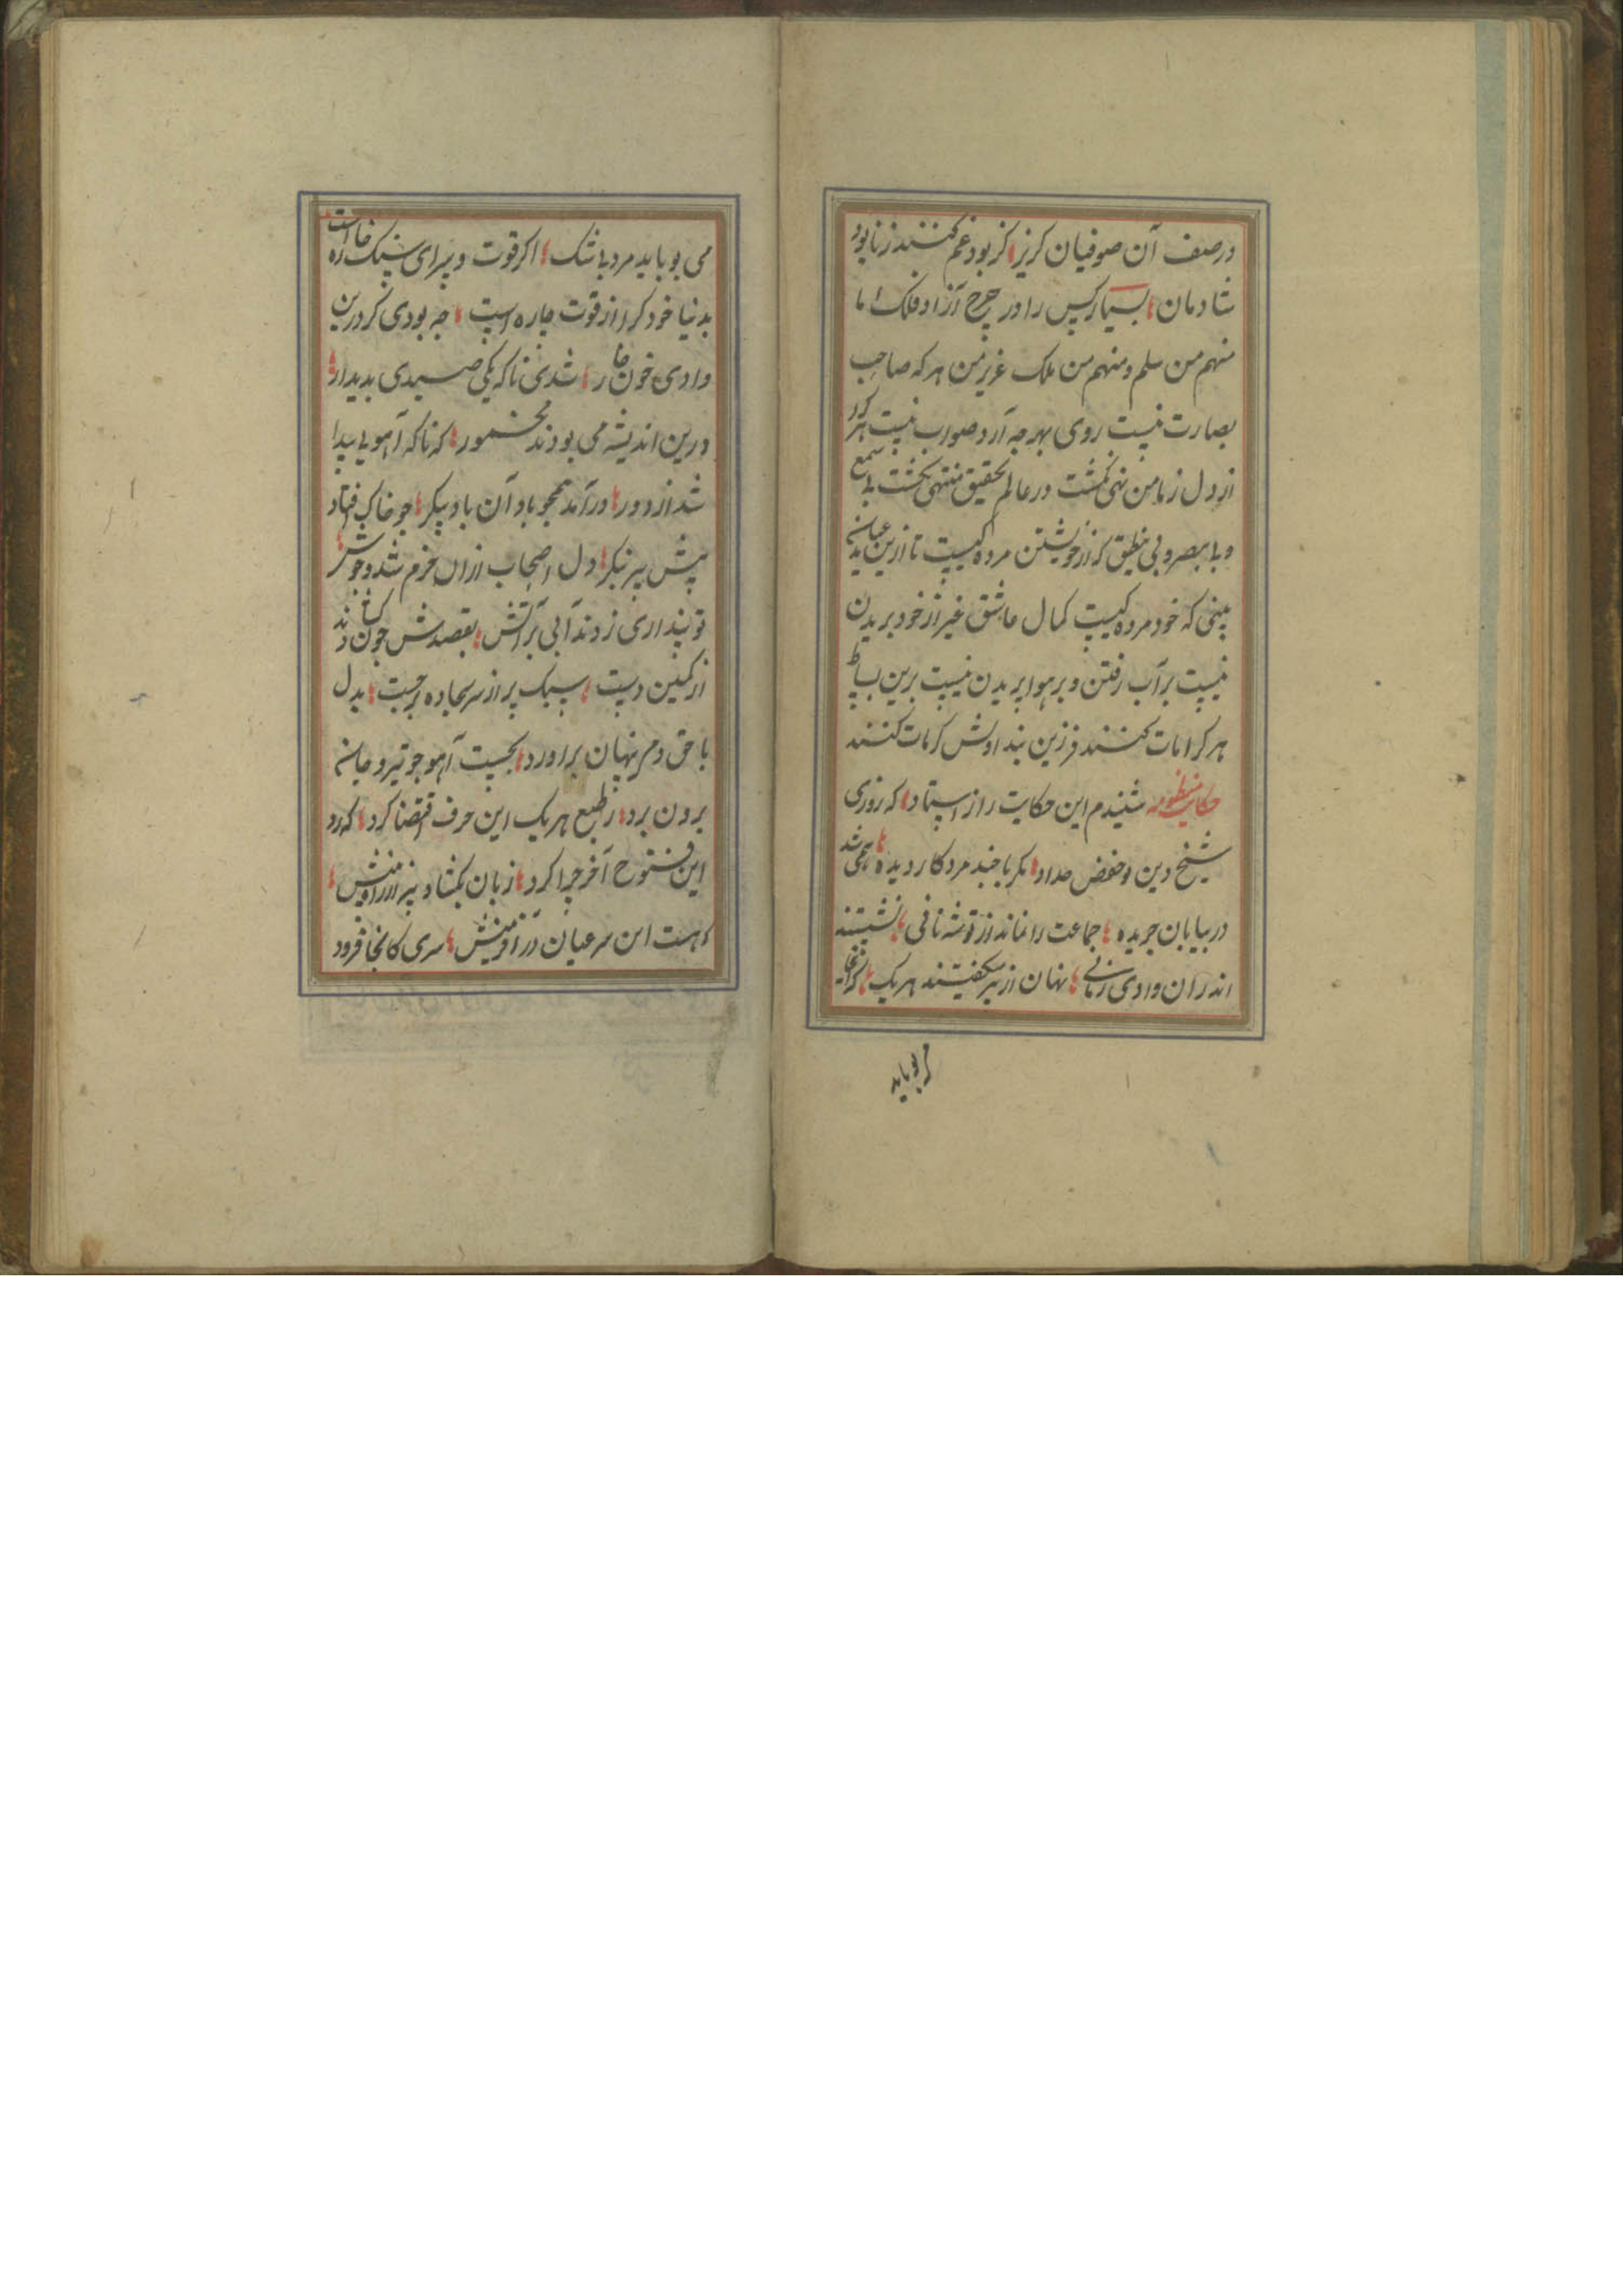 در صف آن صوفیان کریز کز بود غم کنند زنابود
شادمان بسیار کس را در چرخ آزاد فلک اما
منهم من سلم و منهم من هلک عزیز من هر که صاحب
بصارت نیست روی بهر چه آرد صواب نیست هر که
از دل زمامن نهی نکشت در عالم تحقیق منتهی نکشت بی سمع
و بی بصر و بی نطق کز خویشتن مرده کیست تا ازین عیان
بینی که خود مرده کیست کمال عاشق غیر از خود بریدن
نیست بر آب رفتن و بر هوا پریدن نیست برین بساط
هر کرا مات کنند فرزین بند اولش کرامات کنند
حکایت منظومه شنیدم این حکایت را ز استاد که روزی
شیخ دین بوحفض حداد مکر با چند مرد کار دیده همی شد
در بیابان جریده جماعت را نماند از توشه نانی نشستند
اندران وادی زمانی نهان از پیر گفتند هر یک که آنجا
می بوباید
می بوباید مرد باشک اکر قوت و سرای سنک خاره است
بدنیا خود کرا از قوت چاره است چه بودی کر درین
وادی خون خار شدی ناکه یکی صیدی بدیدار
درین اندیشه می بودند مخمور که ناکه آهویی پیدا
شد از دور درآمد همچو باد آن باد پیکر چو خاک افتاد
پیش پیر بنکر دل اصحاب ازان خرم شد و خوش
تو پنداری زدند آبی بر آتش بقصدش چون کشادند
از کمین دست سبک پیر از سر سجاده برجست بدل
با حق دمی پنهان برآورد بجست آهو چو تیر و جان
برون برد ز طبع هر یک این حرف اقتضا کرد که رد
این فتوح آخر چرا کرد زبان بکشاد پیر از رافتش
که هست این سر عیان در آفرینش سری کانجا فرود